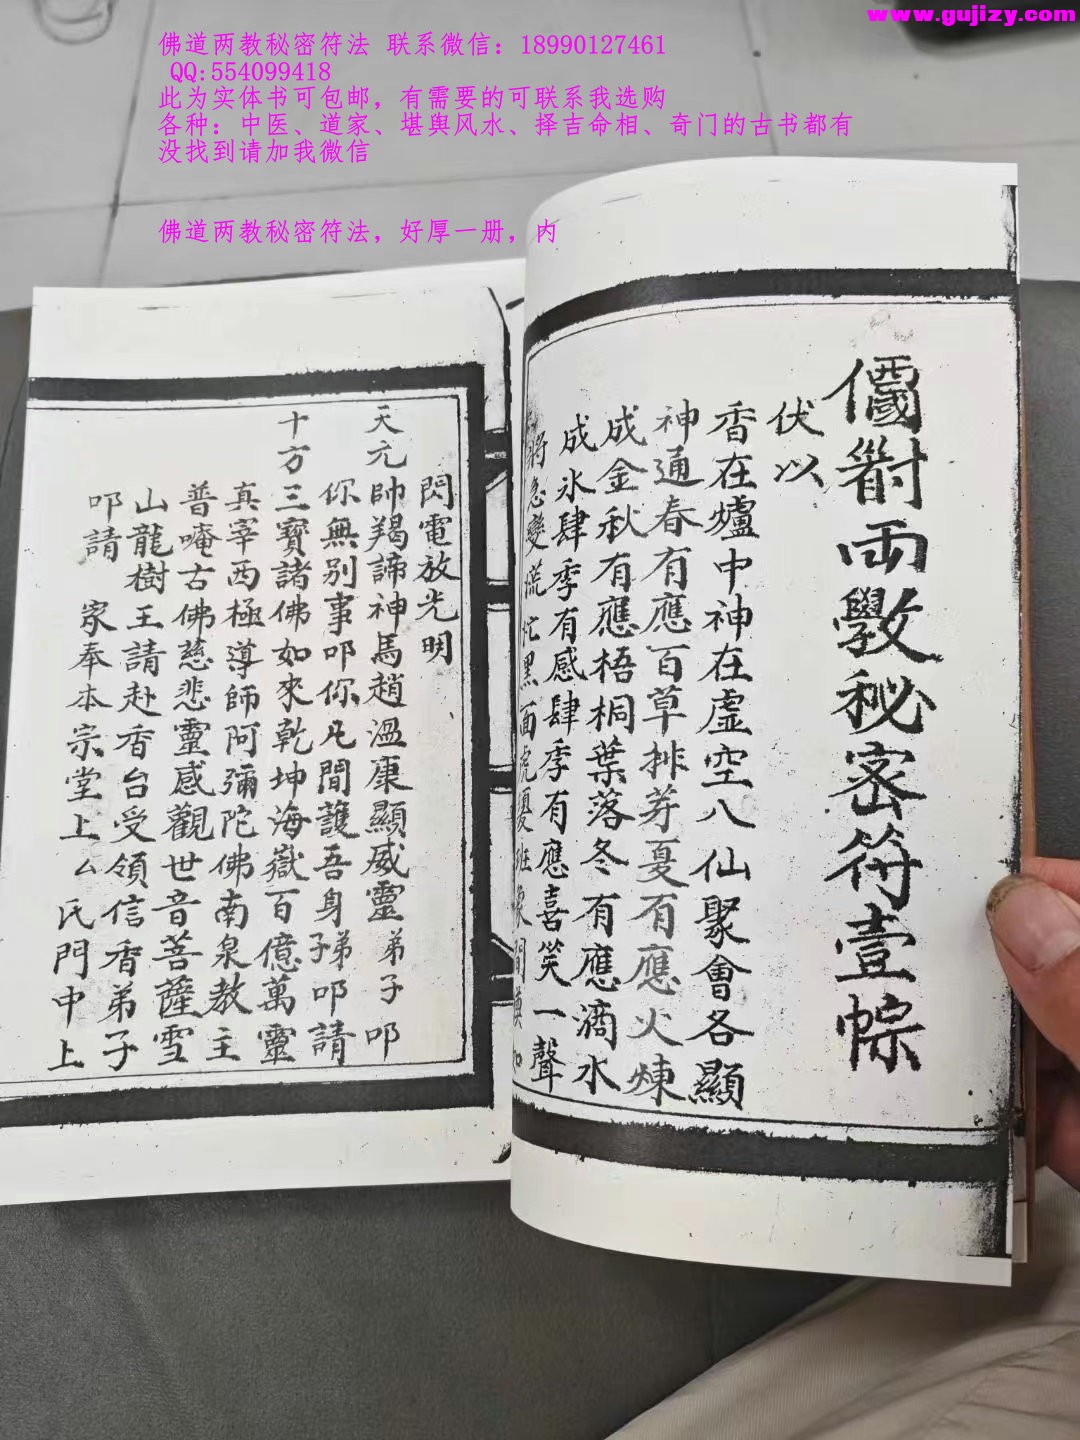 www.gujizy.com
佛道两教秘密符法 联系微信：18990127461
QQ:554099418
此为实体书可包邮，有需要的可联系我选购
各种：中医、道家、堪舆风水、择吉命相、奇门的古书都有
没找到请加我微信
佛道两教秘密符法，好厚一册，内
両教秘密符壹
伏以
香在爐中神在虚空八仙聚會各顯
神通春有應百草排芽夏有應火煉
成金秋有應梧桐葉落冬有應滴水
成氷肆季有感肆季有應喜笑一聲
將急變慌忙黑面虎
閃電放光明
天元帥羯諦神馬趙溫康顯威靈弟子叩
你無别事叩你凢間護吾身子弟叩請
十方三寶諸佛如來乾坤海嶽百億萬靈
真宰西極導師阿彌陀佛南泉教主
普唵古佛慈悲靈感觀世音菩薩雪
山龍樹王請赴香台受領信香弟子
叩請 家奉本宗堂上厶氏門中上